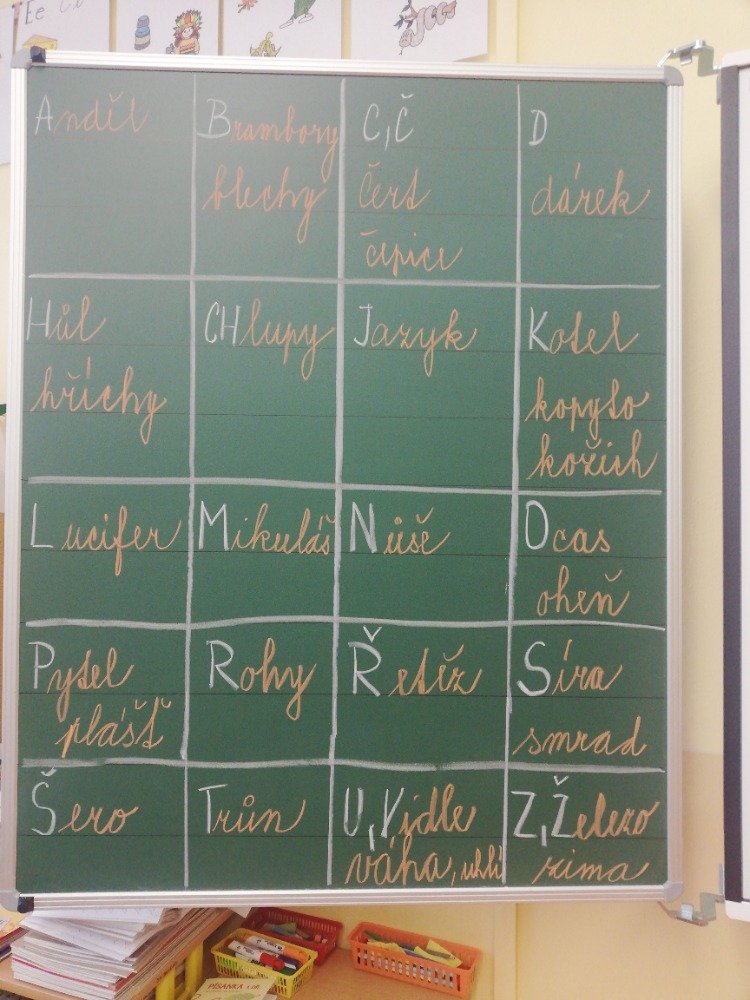 Ee Cc
Anděl
Brambory
blechy
C,Č
čert
čepice
D
dárek
Hůl
hříchy
CHlupy
Jazyk
Kotel
kopyto
kožich
Lucifer
Mikuláš
Nůše
Ocas
oheň
Pytel
plášť
Rohy
Řetěz
Síra
smrad
Šero
Trůn
U,Vidle
váha, uhlí
Z,Železo
zima
PÍSANKA